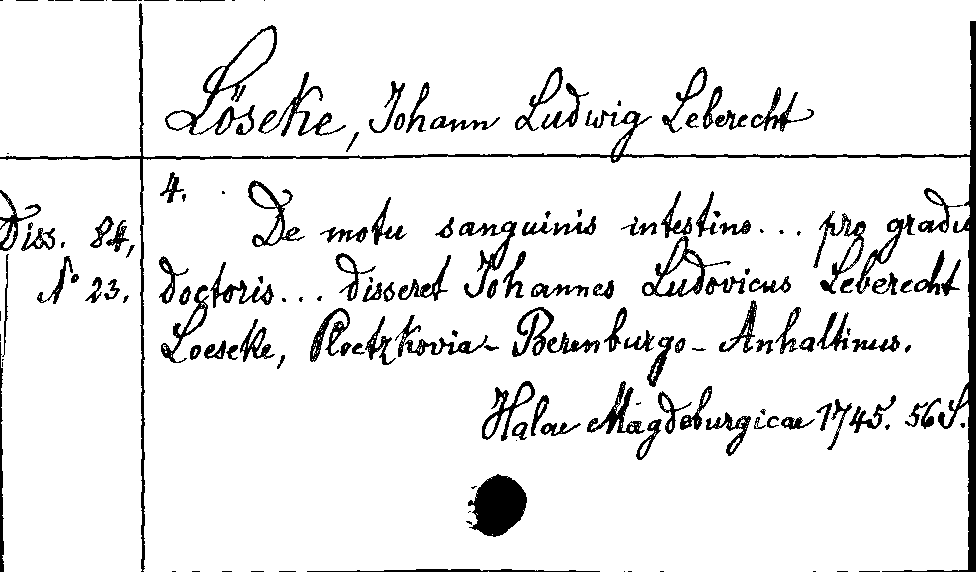 Löseke, Johann Ludwig Leberecht
4.
Diss. 84,
No 23.
De motu sanguinis intestino... pro gradu
doctoris... disseret Johannes Ludovicus Leberecht
Loeseke, Ploetzkovia-Berenburgo-Anhaltinus.
Halae Magdeburgicae 1745. 56 S.